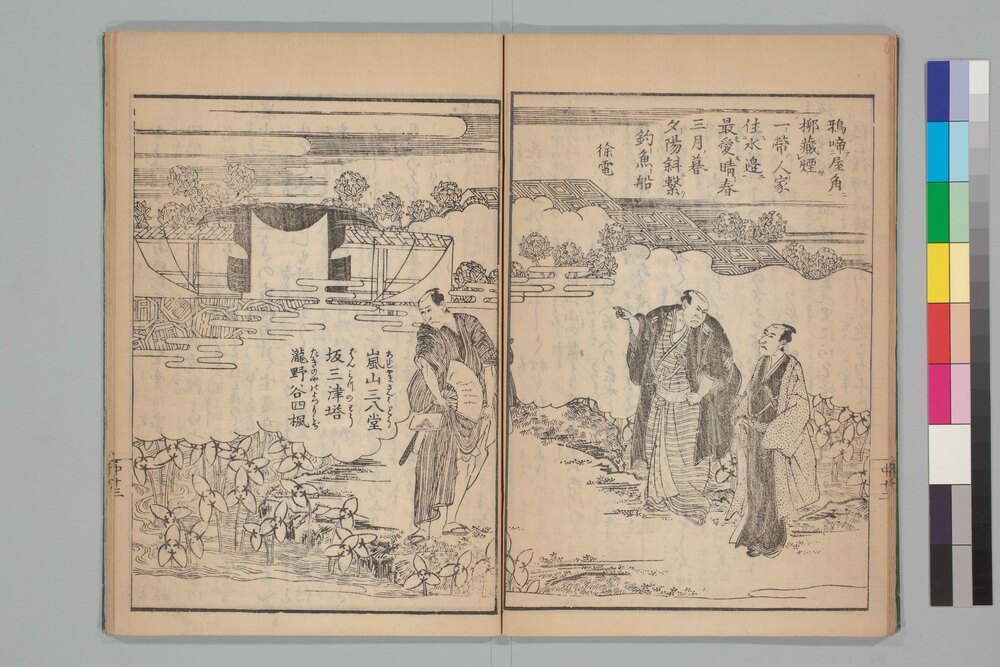 鴉啼屋角
柳藏煙
一帶人家
住水邊
最愛晴春
三月暮
夕陽斜繫
釣魚船
徐電
嵐山三八堂
坂三津塔
瀧野谷四楓